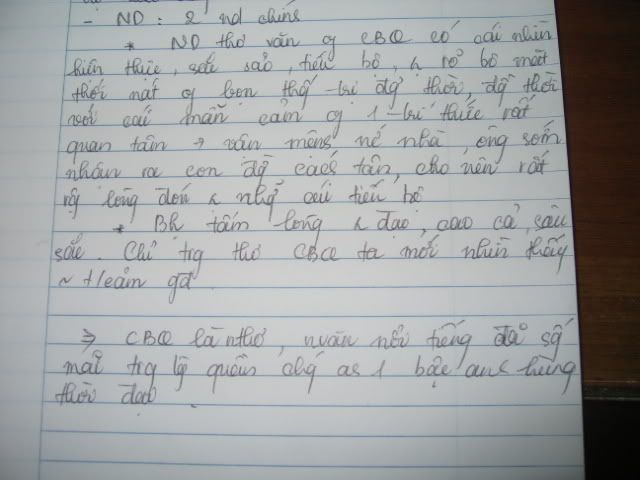 - ND: 2 nd chính
* ND thơ văn of CBQ có cái nhìn
hiện thực, sâu sắc, tiến bộ, rõ bộ mặt
thối nát of bọn thống trị đg thời, đg thời
với cái mẫn cảm of 1 trí thức rất
quan tâm → vận mệnh nc nhà, ông sớm
nhận ra con đg cách tân, cho nên rất
rộng lòng đón nhg cái tiến bộ
* Bh tấm lòng đạo, cao cả, sâu
sắc. Chỉ trg thơ CBQ ta mới nhìn thấy
~ t/cảm gđ
⇒ CBQ là nthơ, nvăn nổi tiếng đã sg
mãi trg lg quần chg as 1 bậc anh hùng
thời đại.